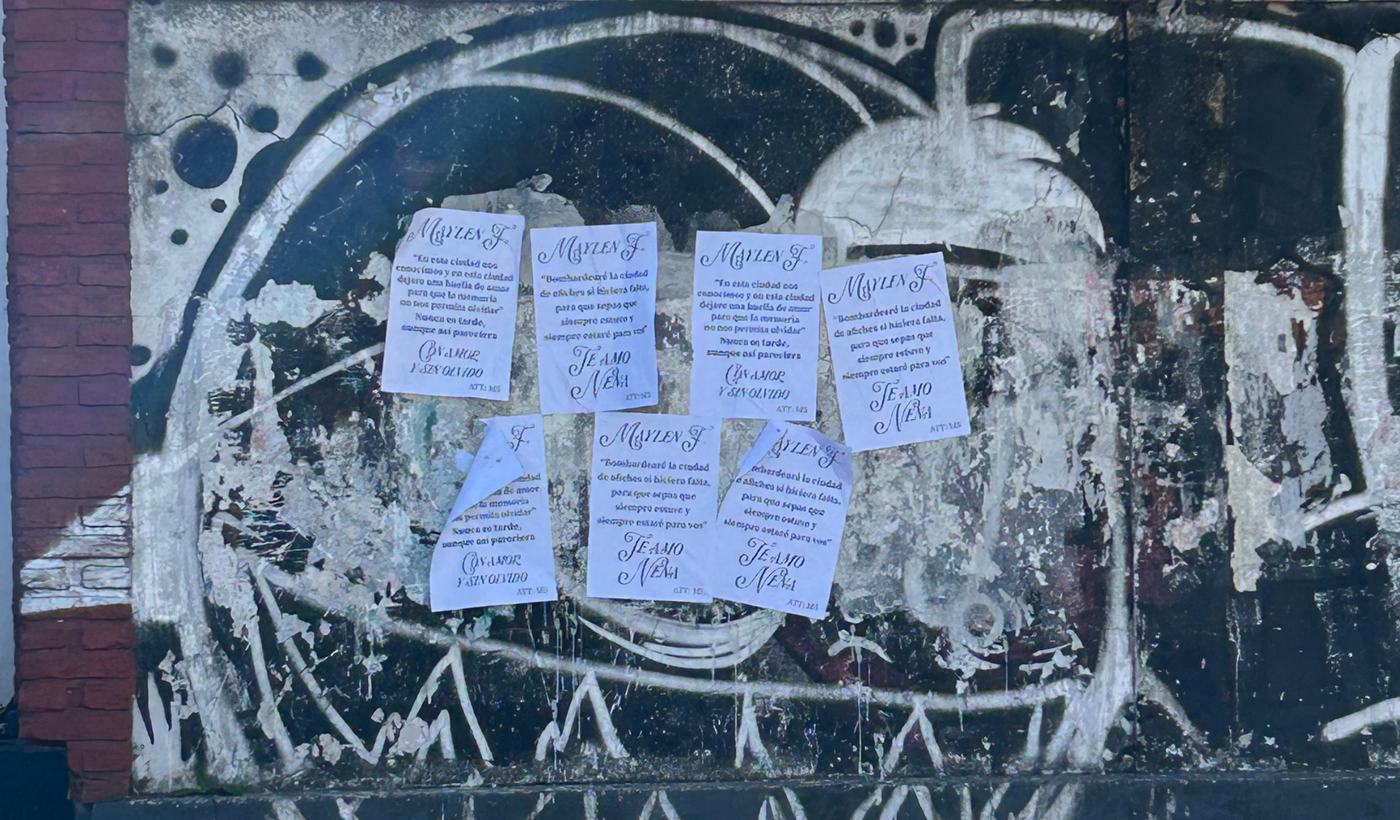 MAYLEN F.
"En esta ciudad nos
conocimos y en esta ciudad
dejare una huella de amor
para que la memoria
no nos permita olvidar"
Nunca es tarde,
aunque así pareciera
CON AMOR
Y SIN OLVIDO
ATT:
MAYLEN F.
"Bombardearé la ciudad
de afiches si hiciera falta,
para que sepas que
siempre estuve y
siempre estaré para vos"
TE AMO
NENA
ATT:
MAYLEN F.
"En esta ciudad nos
conocimos y en esta ciudad
dejare una huella de amor
para que la memoria
no nos permita olvidar"
Nunca es tarde,
aunque así pareciera
CON AMOR
Y SIN OLVIDO
ATT:
MAYLEN F.
"Bombardearé la ciudad
de afiches si hiciera falta,
para que sepas que
siempre estuve y
siempre estaré para vos"
TE AMO
NENA
ATT:
F.
de amor
la memoria
permita olvidar"
Nunca es tarde,
aunque así pareciera
CON AMOR
Y SIN OLVIDO
ATT:
MAYLEN F.
"Bombardearé la ciudad
de afiches si hiciera falta,
para que sepas que
siempre estuve y
siempre estaré para vos"
TE AMO
NENA
ATT:
MAYLEN F.
la ciudad
de afiches si hiciera falta,
para que sepas que
siempre estuve y
siempre estaré para vos"
TE AMO
NENA
ATT: